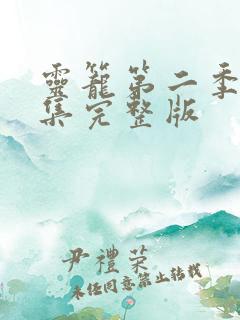 靈籠第二季
集完整版
尹禮榮
未经同意禁止转载